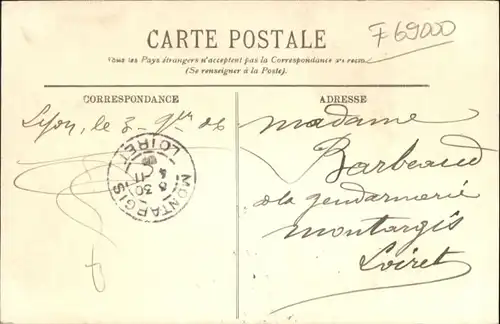 F 69000
CARTE POSTALE
Tous les Pays étrangers n'acceptent pas la Correspondance au recto
(Se renseigner à la Poste).
CORRESPONDANCE
ADRESSE
Lyon, le 3 - 9bre 06
Madame
Barbeaud
de la gendarmerie
Montargis
Loiret
MONTARGIS
LOIRET
8 30
4
11